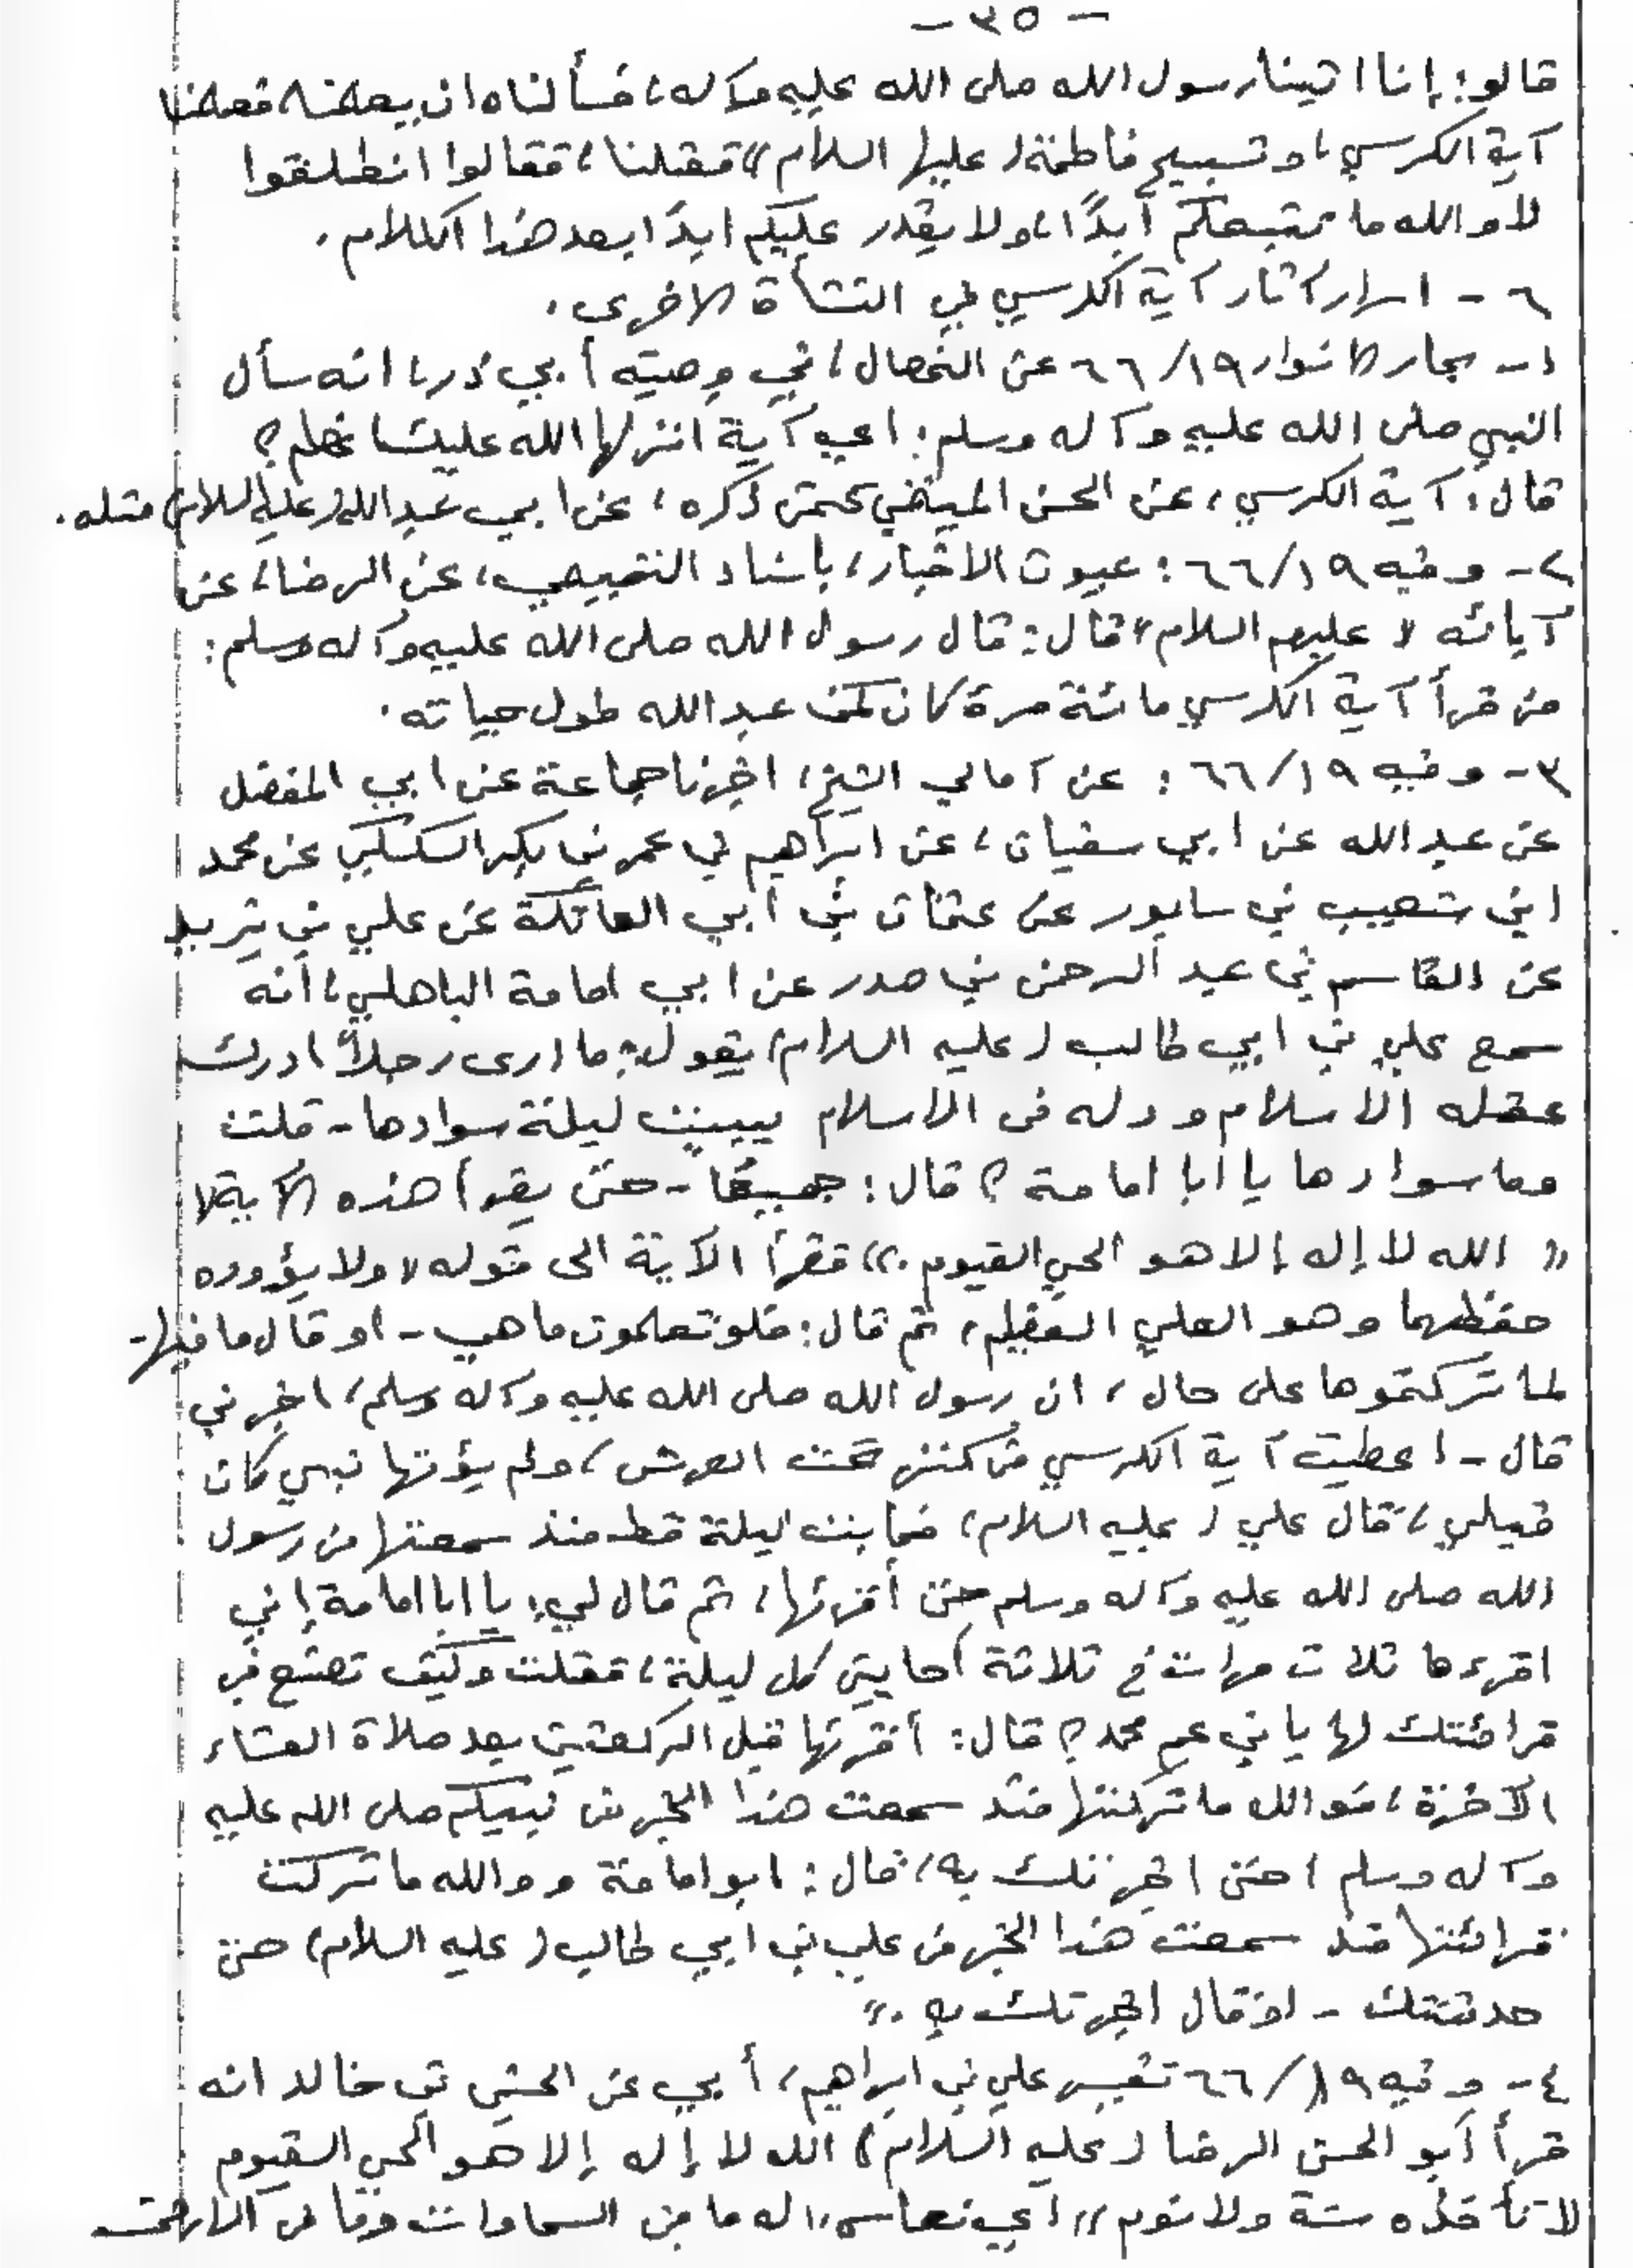 - ٣٥ -
قالو: إنا اتينا رسول الله صلى الله عليه وآله، فسألناه ان يعلمنا، فعلمنا
آية الكرسي، وتسبيح فاطمة (عليها السلام)، فقلنا، فقالوا انطلقوا
لا والله ما نتبعكم أبدًا، ولا يقدر عليكم ابدًا بعد هذا الكلام.
٦ - اسرار آثار آية الكرسي في النشأة الاخرى.
١- بحار الانوار ١٩/ ٦٦ عن الخصال، في وصية أبي ذر، انه سأل
النبي صلى الله عليه وآله وسلم: اي آية انزلها الله عليك اعظم؟
قال: آية الكرسي، عن الحسن الميثمي عمن ذكره، عن ابي عبدالله (عليه السلام) مثله.
٢- وفيه ١٩/ ٦٦: عيون الاخبار، بأسناد التميمي، عن الرضا، عن
آبائه (عليهم السلام) قال: قال رسول الله صلى الله عليه وآله وسلم:
من قرأ آية الكرسي مائة مرة كان كمن عبد الله طول حياته.
٣- وفيه ١٩/ ٦٦: عن آمالي الشيخ، اخبرنا جماعة عن ابي المفضل
عن عبد الله عن ابي سفيان، عن ابراهيم بن عمر بن بكر السكسكي عن محمد
ابن شعيب بن سابور عن عثمان بن أبي العاتكة عن علي بن يزيد
عن القاسم بن عبد الرحمن بن صدر عن ابي امامة الباهلي، أنه
سمع علي بن ابي طالب (عليه السلام) يقول: ما ارى رجلاً ادرك
عقله الاسلام ودله في الاسلام يبيت ليلة سوادها - قلت
وما سوادها يا ابا امامة؟ قال: جميعًا - حتى يقرأ هذه الآية
« الله لا إله إلا هو الحي القيوم.» فقرأ الآية الى قوله «ولا يؤوده
حفظهما وهو العلي العظيم، ثم قال: فلو تعلمون ما هي - او قال ما فيها -
لما تركتموها على حال، ان رسول الله صلى الله عليه وآله وسلم، اخبرني
قال - اعطيت آية الكرسي من كنز تحت العرش، ولم يؤتها نبي كان
قبلي، قال علي (عليه السلام) فما بت ليلة قط منذ سمعتها من رسول
الله صلى الله عليه وآله وسلم حتى أقرئها، ثم قال لي: يا ابا امامة إني
اقرءها ثلاث مرات في ثلاثة أحايين كل ليلة، فقلت وكيف تصنع في
قرائتك لها يا بن عم محمد؟ قال: أقرئها قبل الركعتين بعد صلاة العشاء
الآخرة، فو الله ما تركتها منذ سمعت هذا الخبر من نبيكم صلى الله عليه
وآله وسلم، حتى اخبرتك به، قال: ابو امامة ووالله ما تركت
قرائتها منذ سمعت هذا الخبر من علي بن ابي طالب (عليه السلام) حتى
حدثتك - او قال اخبرتك به.»
٤- وفيه ١٩/ ٦٦ تفسير علي بن ابراهيم، أبي عن الحسين بن خالد انه
قرأ أبو الحسن الرضا (عليه السلام) الله لا إله إلا هو الحي القيوم
لا تأخذه سنة ولا نوم» اي نعاس «له ما في السماوات وما في الارض